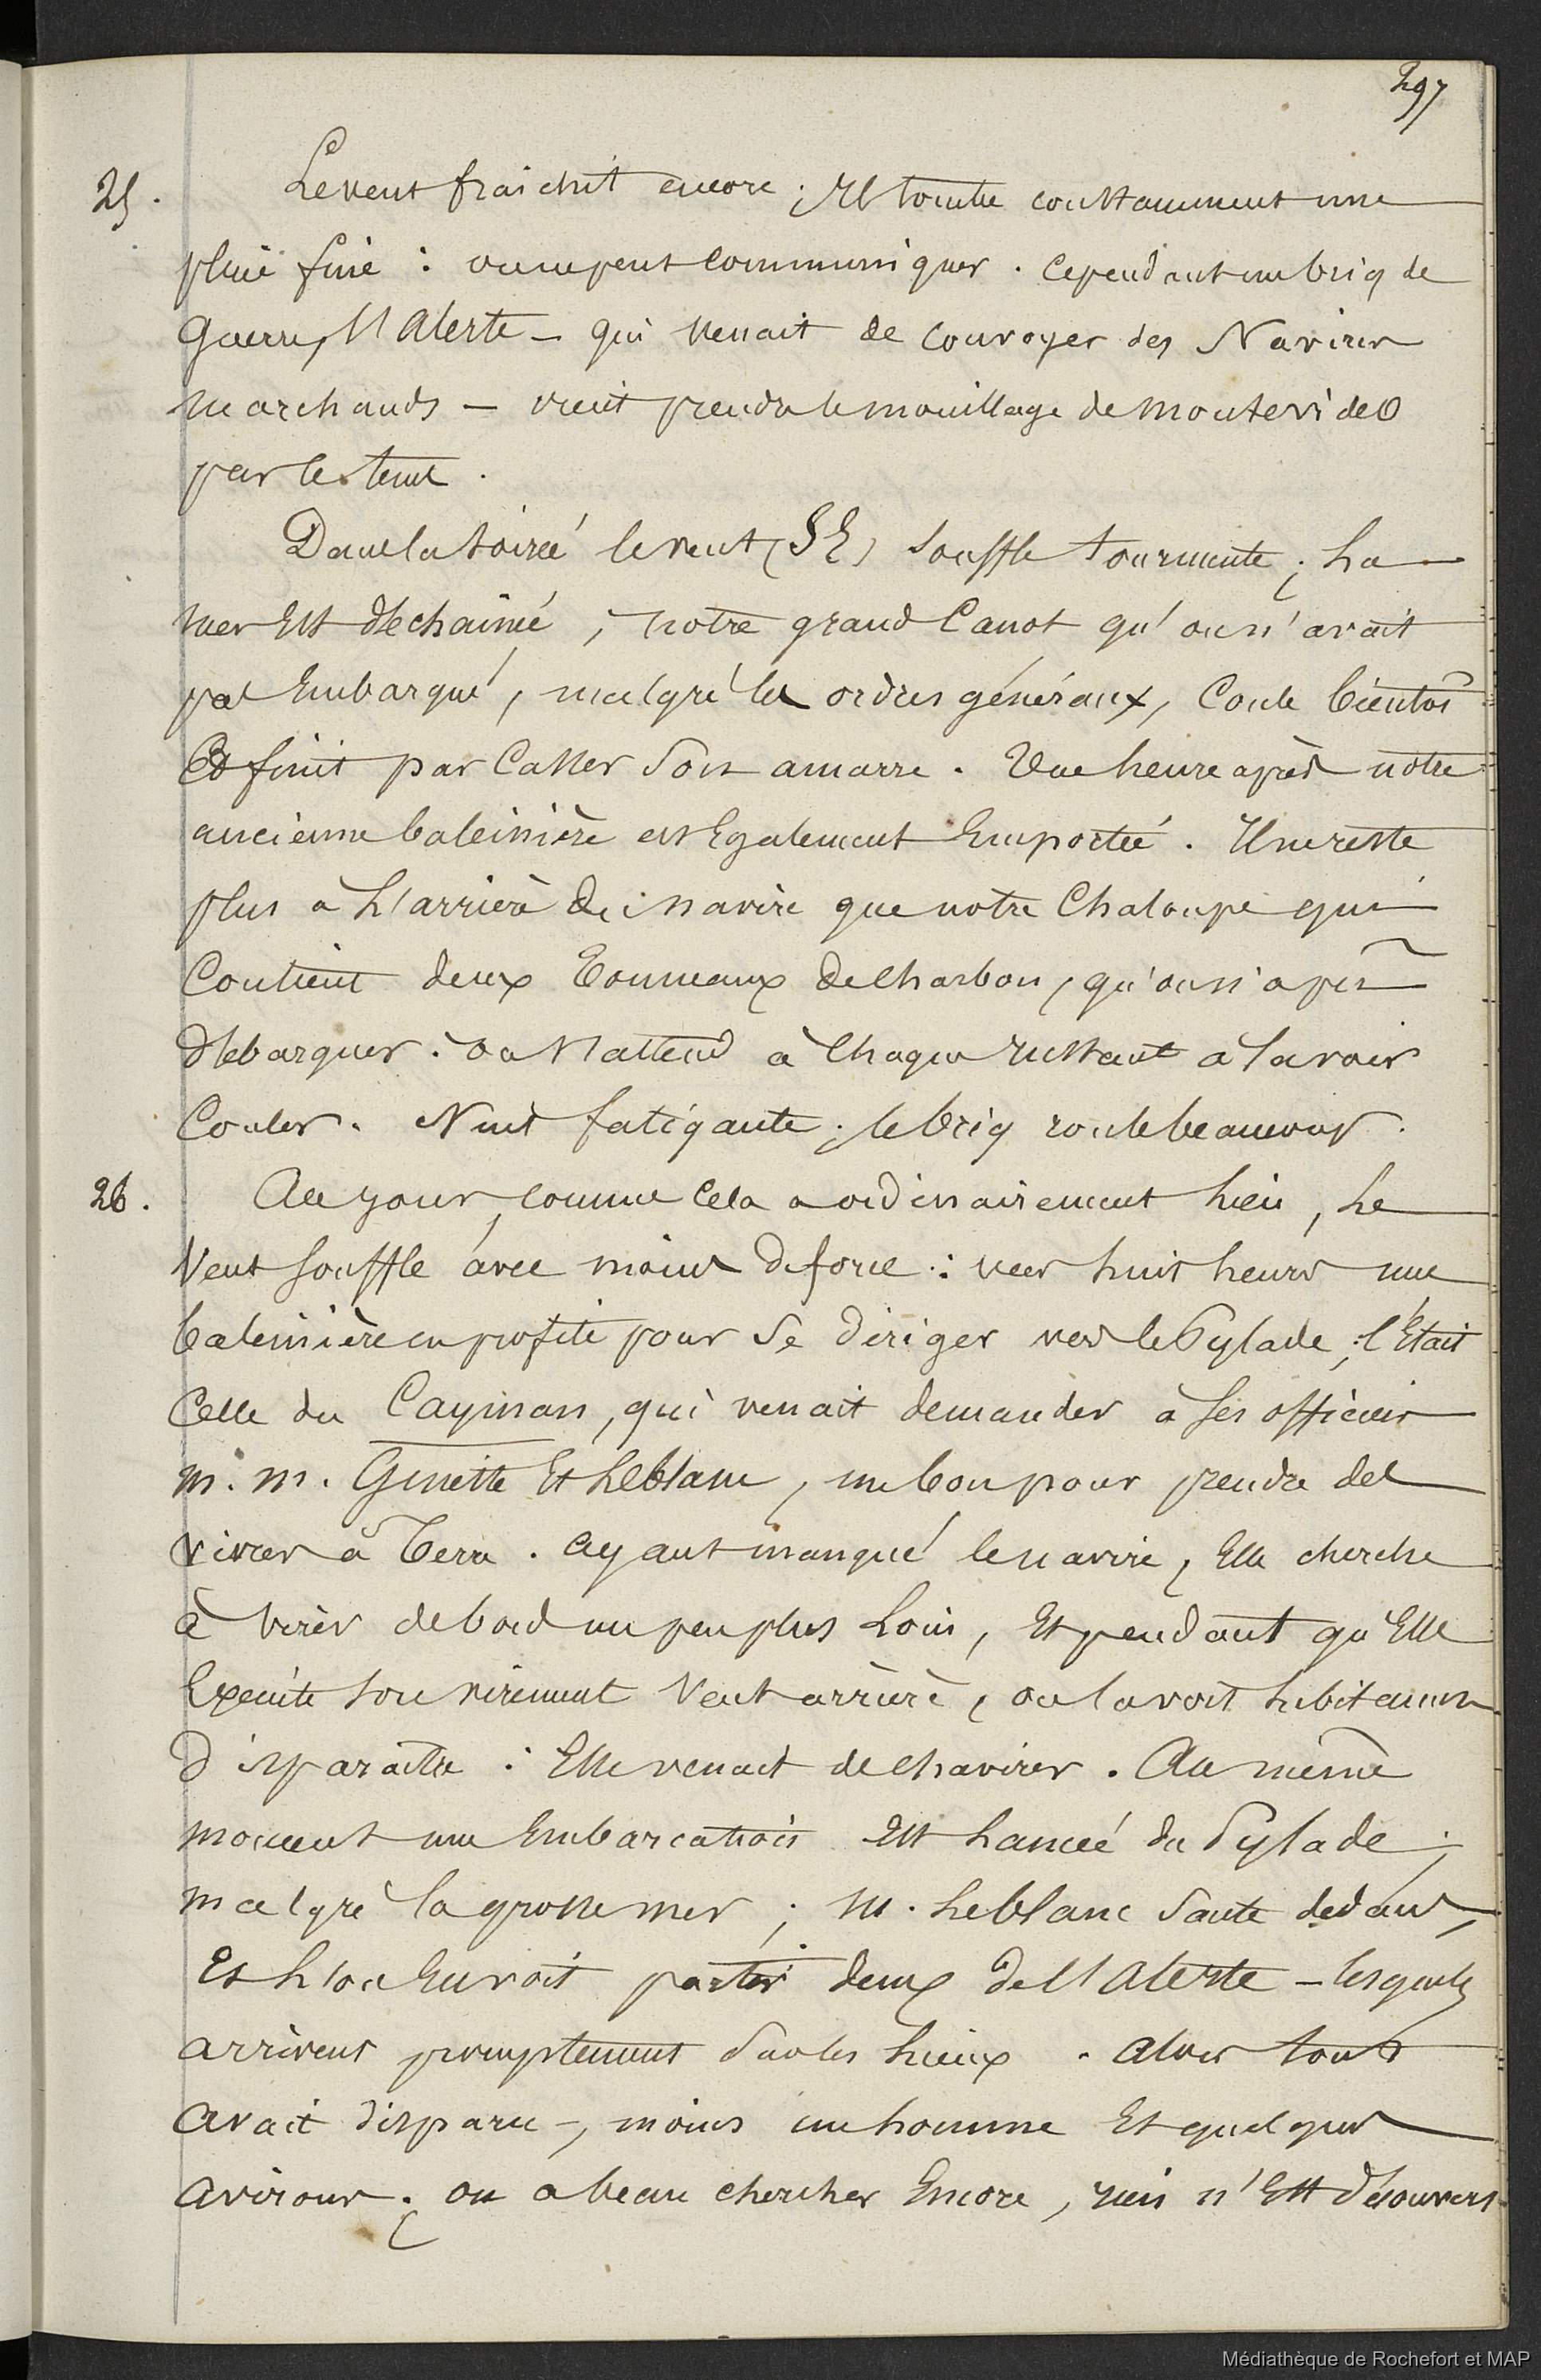 297
25. Le vent fraichit encore ; Il tombe constamment une
pluie fine : on ne peut communiquer . Cependant un brig de
Guerre, l'Alerte – qui venait de Convoyer des Navires
marchands – vient prendre le mouillage de Montevideo
par le tems .
Dans la soirée le vent (SE) souffle tourmente ; La
mer Est déchainée , notre grand Canot qu'on n'avait
pas Embarqué, malgré les ordres généraux, Coule bientôt
Et finit par Casser Son amarre . Une heure après notre
ancienne baleinière est Egalement Emportée . Il ne reste
plus à L'arrière du navire que notre Chaloupe qui
Contient deux Tonneaux de Charbon, qu'on n'a pu
débarquer . On s'attend à Chaque Instant à la voir
Couler . Nuit fatigante ; le brig roule beaucoup .
26. Au jour, comme Cela a ordinairement Lieu , Le
Vent Souffle avec moins de force : vers huit heures une
baleinière en profite pour Se diriger vers le Pylade ; C'Etait
Celle du Cayman, qui venait demander à Ses officiers
M. M. Ginette Et Leblanc , un bon pour prendre des
vivres à Terre . Ayant manqué le navire , Elle cherche
à virer de bord un peu plus Loin , Et pendant qu'Elle
Execute son virement Vent arrière , on la voit subitement
disparaitre : Elle venait de Chavirer . Au même
moment une Embarcation Est Lancée du Pylade ;
malgré la grosse mer ; M. Leblanc Saute dedans ,
Et L'on En voit partir deux de l'Alerte – lesquels
arrivent promptement Sur les Lieux . Alors tout
avait disparu –, moins un homme Et quelques
avirons ; on a beau chercher Encore , rien n'Est découvert
Médiathèque de Rochefort et MAP